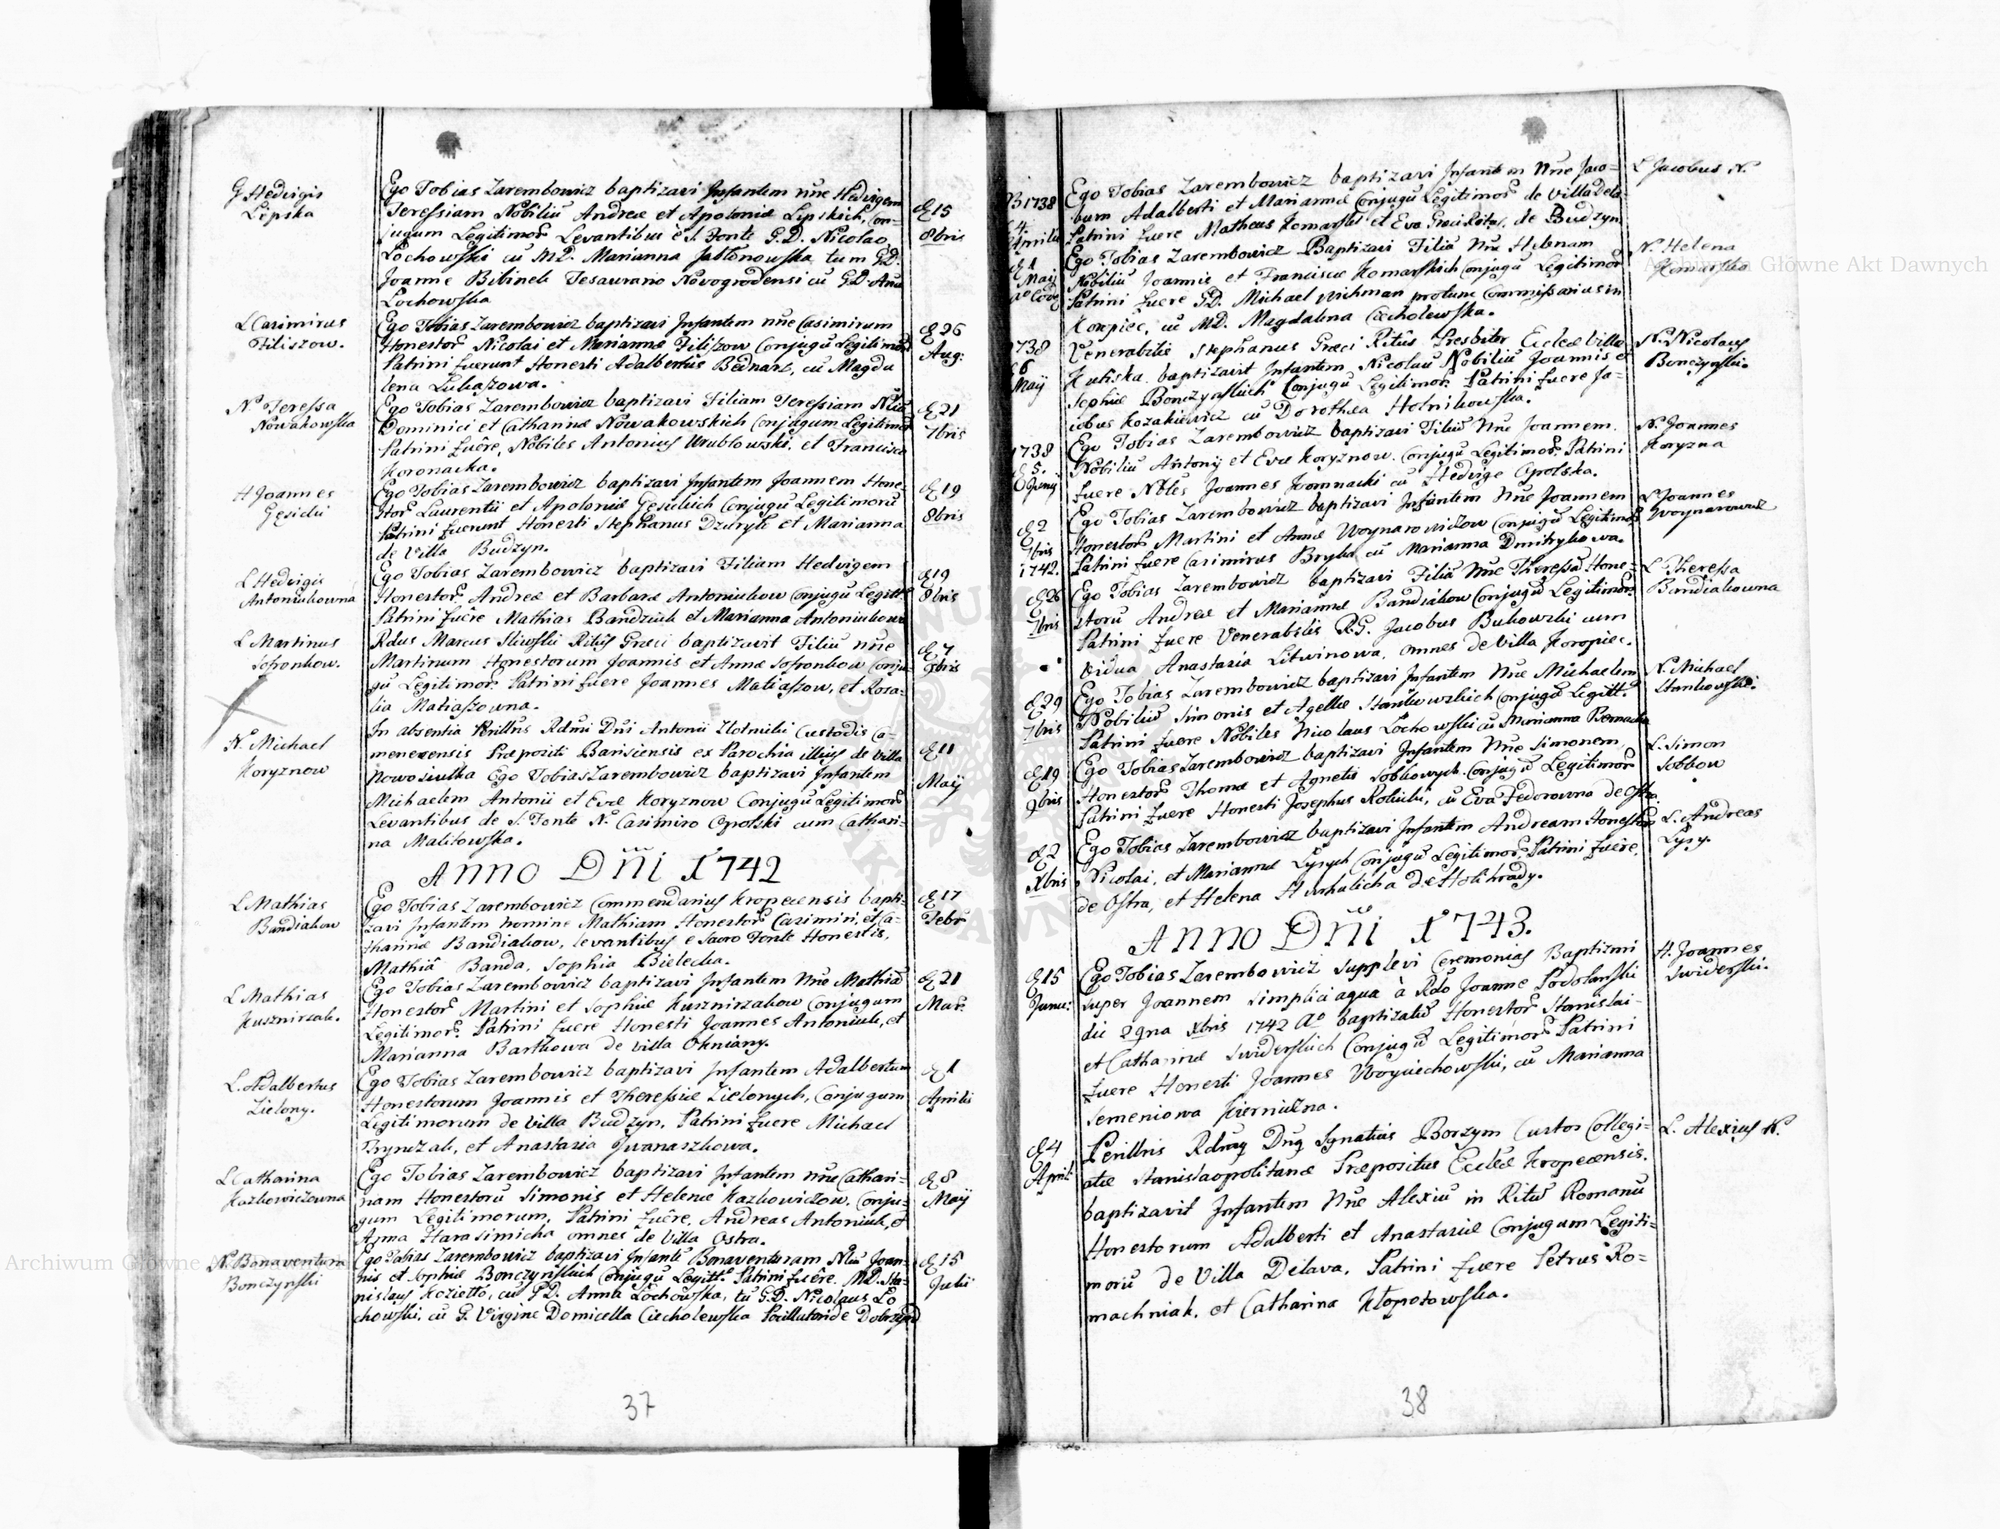 G Hedvigis
Lipska
Ego Tobias Zarembowicz baptizavi Infantem nñe Hedvigem
Teressiam Nobiliũ Andreæ et Apoloniæ Lipskich, Con-
jugum Legitimor̃ Levantibus è S. Fonte G.D. Nicolao
Łochowski cũ MD. Marianna Jabłonowska tum G.D.
Joanne Bibinek Tesaurario Novogrodensi cũ G.D. Anna
Łochowska
D 15
8bris
L Casimirus
Filiszow.
Ego Tobias Zarembowicz baptizavi Infantem nñe Casimirum
Honestor̃ Nicolai et Mariannæ Filiszow Conjugũ Legitimor̃
Patrini fuerunt Honesti Adalbertus Bednarz, cũ Magda
lena Lukaszowa.
D 26
Aug:
N. Teressa
Nowakowska
Ego Tobias Zarembowicz baptizavi Filiam Teressiam Nliũ
Dominici et Catharinæ Nowakowskich Conjugum Legitimor̃
Patrini fuêre, Nobiles Antonius Wrublowski, et Francisca
Koronacka.
D 21
7bris
H Joannes
Gęsicki
Ego Tobias Zarembowicz baptizavi Infantem Joannem Hone-
stor̃ Laurentii et Apoloniæ Gęsickich Conjugũ Legitimorũ
Patrini fuerunt Honesti Stephanus Dzuryk et Marianna
de Villa Budzyn.
D 19
8bris
L Hedvigis
Antoniukowna
Ego Tobias Zarembowicz baptizavi Filiam Hedvigem
Honestor̃ Andreæ et Barbaræ Antoniukow Conjugũ Legitt:
Patrini fuêre Mathias Bandziuk et Marianna Antoniukowa
D 19
8bris
L Martinus
Sofronkow.
Rdus Marcus Sliwski Ritũs Græci baptizavit Filiũ nñe
Martinum Honestorum Joannis et Annæ Sofronkow Conju-
gũ Legitimor̃. Patrini fuêre Joannes Matiaszow, et Rosa-
lia Matiaszowna.
D 7
9bris
N. Michael
Koryznow
In absentia Perillris Rdmi Dñi Antonii Zlotnicki Custodis Ca-
menecensis Præpositi Barisiensis ex Parochia illius de Villa
Nowosiułka Ego Tobias Zarembowicz baptizavi Infantem
Michaelem Antonii et Evæ Koryznow Conjugũ Legitimor̃
Levantibus de S. Fonte N. Casimiro Opolski cum Cathari-
na Malitowska.
D 11
Maij
Anno Dñi 1742
L Mathias
Bandiakow
Ego Tobias Zarembowicz Commendarius Kropecensis bapti-
zavi Infantem nomine Mathiam Honestor̃ Casimiri, et Ca-
tharinæ Bandiakow, levantibus e Sacro Fonte Honestis,
Mathiâ Banda, Sophia Bielecka.
D 17
Febr
L Mathias
Kusznirzak.
Ego Tobias Zarembowicz baptizavi Infantem Nñe Mathiã
Honestor̃ Martini et Sophiæ Kusznirzakow Conjugum
Legitimor̃. Patrini fuere Honesti Joannes Antoniuk, et
Marianna Bartkowa de villa Okniany.
D 21
Mar.
L. Adalbertus
Zielony.
Ego Tobias Zarembowicz baptizavi Infantem Adalbertum
Honestorum Joannis et Theressiæ Zielonych, Conjugum
Legitimorum de Villa Budzyn, Patrini fuere Michael
Bryndzak, et Anastasia Jwanaszkowa.
D 1
Aprilis
L Catharina
Kazkowiczowna
Ego Tobias Zarembowicz baptizavi Infantem nñe Cathari-
nam Honestorũ Simonis et Helenæ Kazkowiczow, Conju-
gum Legitimorum, Patrini fuêre, Andreas Antoniuk, et
Anna Harasimicha omnes de Villa Ostra.
D 8
Maij
N. Bonaventura
Bonczynski
Ego Tobias Zarembowicz baptizavi Infantẽ Bonaventuram Nliũ Joan-
nis et Sophiæ Bonczynskich Conjugũ Legitt: Patrini fuêre. M.D. Sta-
nislaus Kozietto, cũ G.D. Anna Łochowska, tũ G.D. Nicolaus Ło
chowski, cũ G. Virgine Domicella Ciecholewska Pocillatoride Dobrzyń
D 15
Julii
37
1738
4
Aprilis
Ego Tobias Zarembowicz baptizavi Infantem Nñe Jaco-
bum Adalberti et Mariannæ Conjugũ Legitimor̃ de Villa Dela
Patrini fuere Matheus Komarski et Eva Græci Ritus, de Budzyn
L Jacobus N.
D 1
Maij
Ego Tobias Zarembowicz Baptizavi Filiã Nñe Helenam
Nobiliũ Joannis et Franciscæ Komarskich Conjugũ Legitimor̃
Patrini fuere G.D. Michael Wichman protunc Commissarius in
Koropiec, cũ MD. Magdalena Ciecholewska.
N. Helena
Komarska
1738
D 6
Maij
Venerabilis Stephanus Græci Ritũs Presbiter Eccleæ Villæ
Kutiska baptizavit Infantem Nicolaũ Nobiliũ Joannis et
Sophiæ Bonczynskich Conjugũ Legitimor̃ Patrini fuere Ja-
cobus Kozakiewicz cũ Dorothea Hotnikowska.
N. Nicolaus
Bonczynski.
1738
D 5.
Junij
Ego Tobias Zarembowicz baptizavi Filiũ Nñe Joannem
Nobiliũ Antonij et Evæ Koryznow. Conjugũ Legitimor̃. Patrini
fuere Nbles Joannes Kromnacki cũ Hedvige Opolska.
N. Joannes
Koryzna
D 2
7bris
1742.
Ego Tobias Zarembowicz baptizavi Infantem Nñe Joannem
Honestor̃ Martini et Annæ Woynarowiczow Conjugũ Legitimor̃
Patrini fuere Casimirus Brykul cũ Marianna Dmitrykowa.
L Joannes
Woynarowicz
D 26
7bris
Ego Tobias Zarembowicz baptizavi Filiã Nñe Theressã Hone-
storũ Andreæ et Mariannæ Bandiakow Conjugũ Legitimor̃
Patrini fuere Venerabilis R.G. Jacobus Bukowski cum
Vidua Anastasia Litwinowa, omnes de Villa Koropiec.
L Theressa
Bandiakowna
D 29
7bris
Ego Tobias Zarembowicz baptizavi Infantem Nñe Michaelem
Nobiliũ Simonis et Agellæ Stankowskich Conjugũ Legitt:
Patrini fuere Nobiles Nicolaus Łochowski cũ Marianna Bernacka
N. Michael
Stankowski.
D 19
9bris
Ego Tobias Zarembowicz baptizavi Infantem Nñe Simonem,
Honestor̃ Thomæ et Agnetis Sobkowych Conjugũ Legitimor̃
Patrini fuere Honesti Josephus Rolicki, cũ Eva Fedorowna de Ostra
L. Simon
Sobkow
D 2
Xbris
Ego Tobias Zarembowicz baptizavi Infantem Andream Honestor̃
Nicolai, et Mariannæ Lysych Conjugũ Legitimor̃, Patrini fuêre,
de Ostra, et Helena Huhalicha de Holihrady.
L. Andreas
Lysy.
Anno Dñi 1743.
D 15
Janu:
Ego Tobias Zarembowicz supplevi Ceremonias Baptismi
super Joannem simplici aqua à Rdo Joanne Podolański
die 29na Xbris 1742 Aº baptizatũ Honestor̃ Stanislai
et Catharinæ Swiderskich Conjugũ Legitimor̃ Patrini
fuere Honesti Joannes Woyciechowski, cũ Marianna
Semeniowa Kierniczna.
H. Joannes
Swiderski.
D 4
April:
Perillris Rdmus Dñus Ignatius Borzym Custos Collegi-
atæ Stanislaopolitanæ Præpositus Eccleæ Kropecensis.
baptizavit Infantem Nñe Alexiũ in Ritũ Romanũ
Honestorum Adalberti et Anastasiæ Conjugum Legiti-
morũ de Villa Delava, Patrini fuere Petrus Ro-
machniak, et Catharina Kłopotowska.
L. Alexius N.
38
Archiwum Główne Akt Dawnych
Archiwum Główne Akt Dawnych